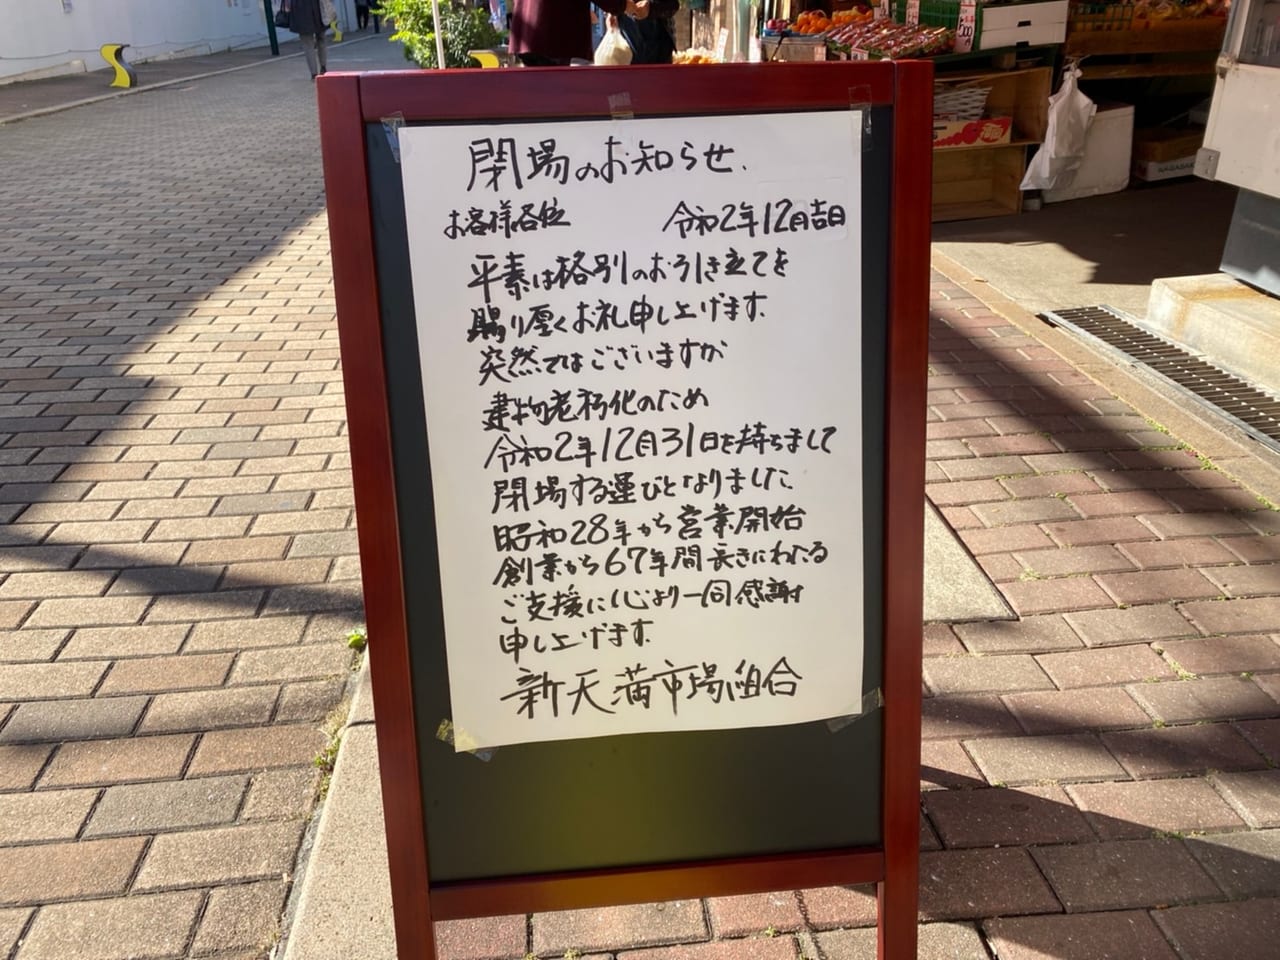 閉場のお知らせ、
お客様各位 令和2年12月吉日
平素は格別のお引き立てを
賜り厚くお礼申し上げます。
突然ではございますが
建物老朽化のため
令和2年12月31日を持ちまして
閉場する運びとなりました。
昭和28年から営業開始
創業から67年間長きにわたる
ご支援に心より一同感謝
申し上げます。
新天満市場組合